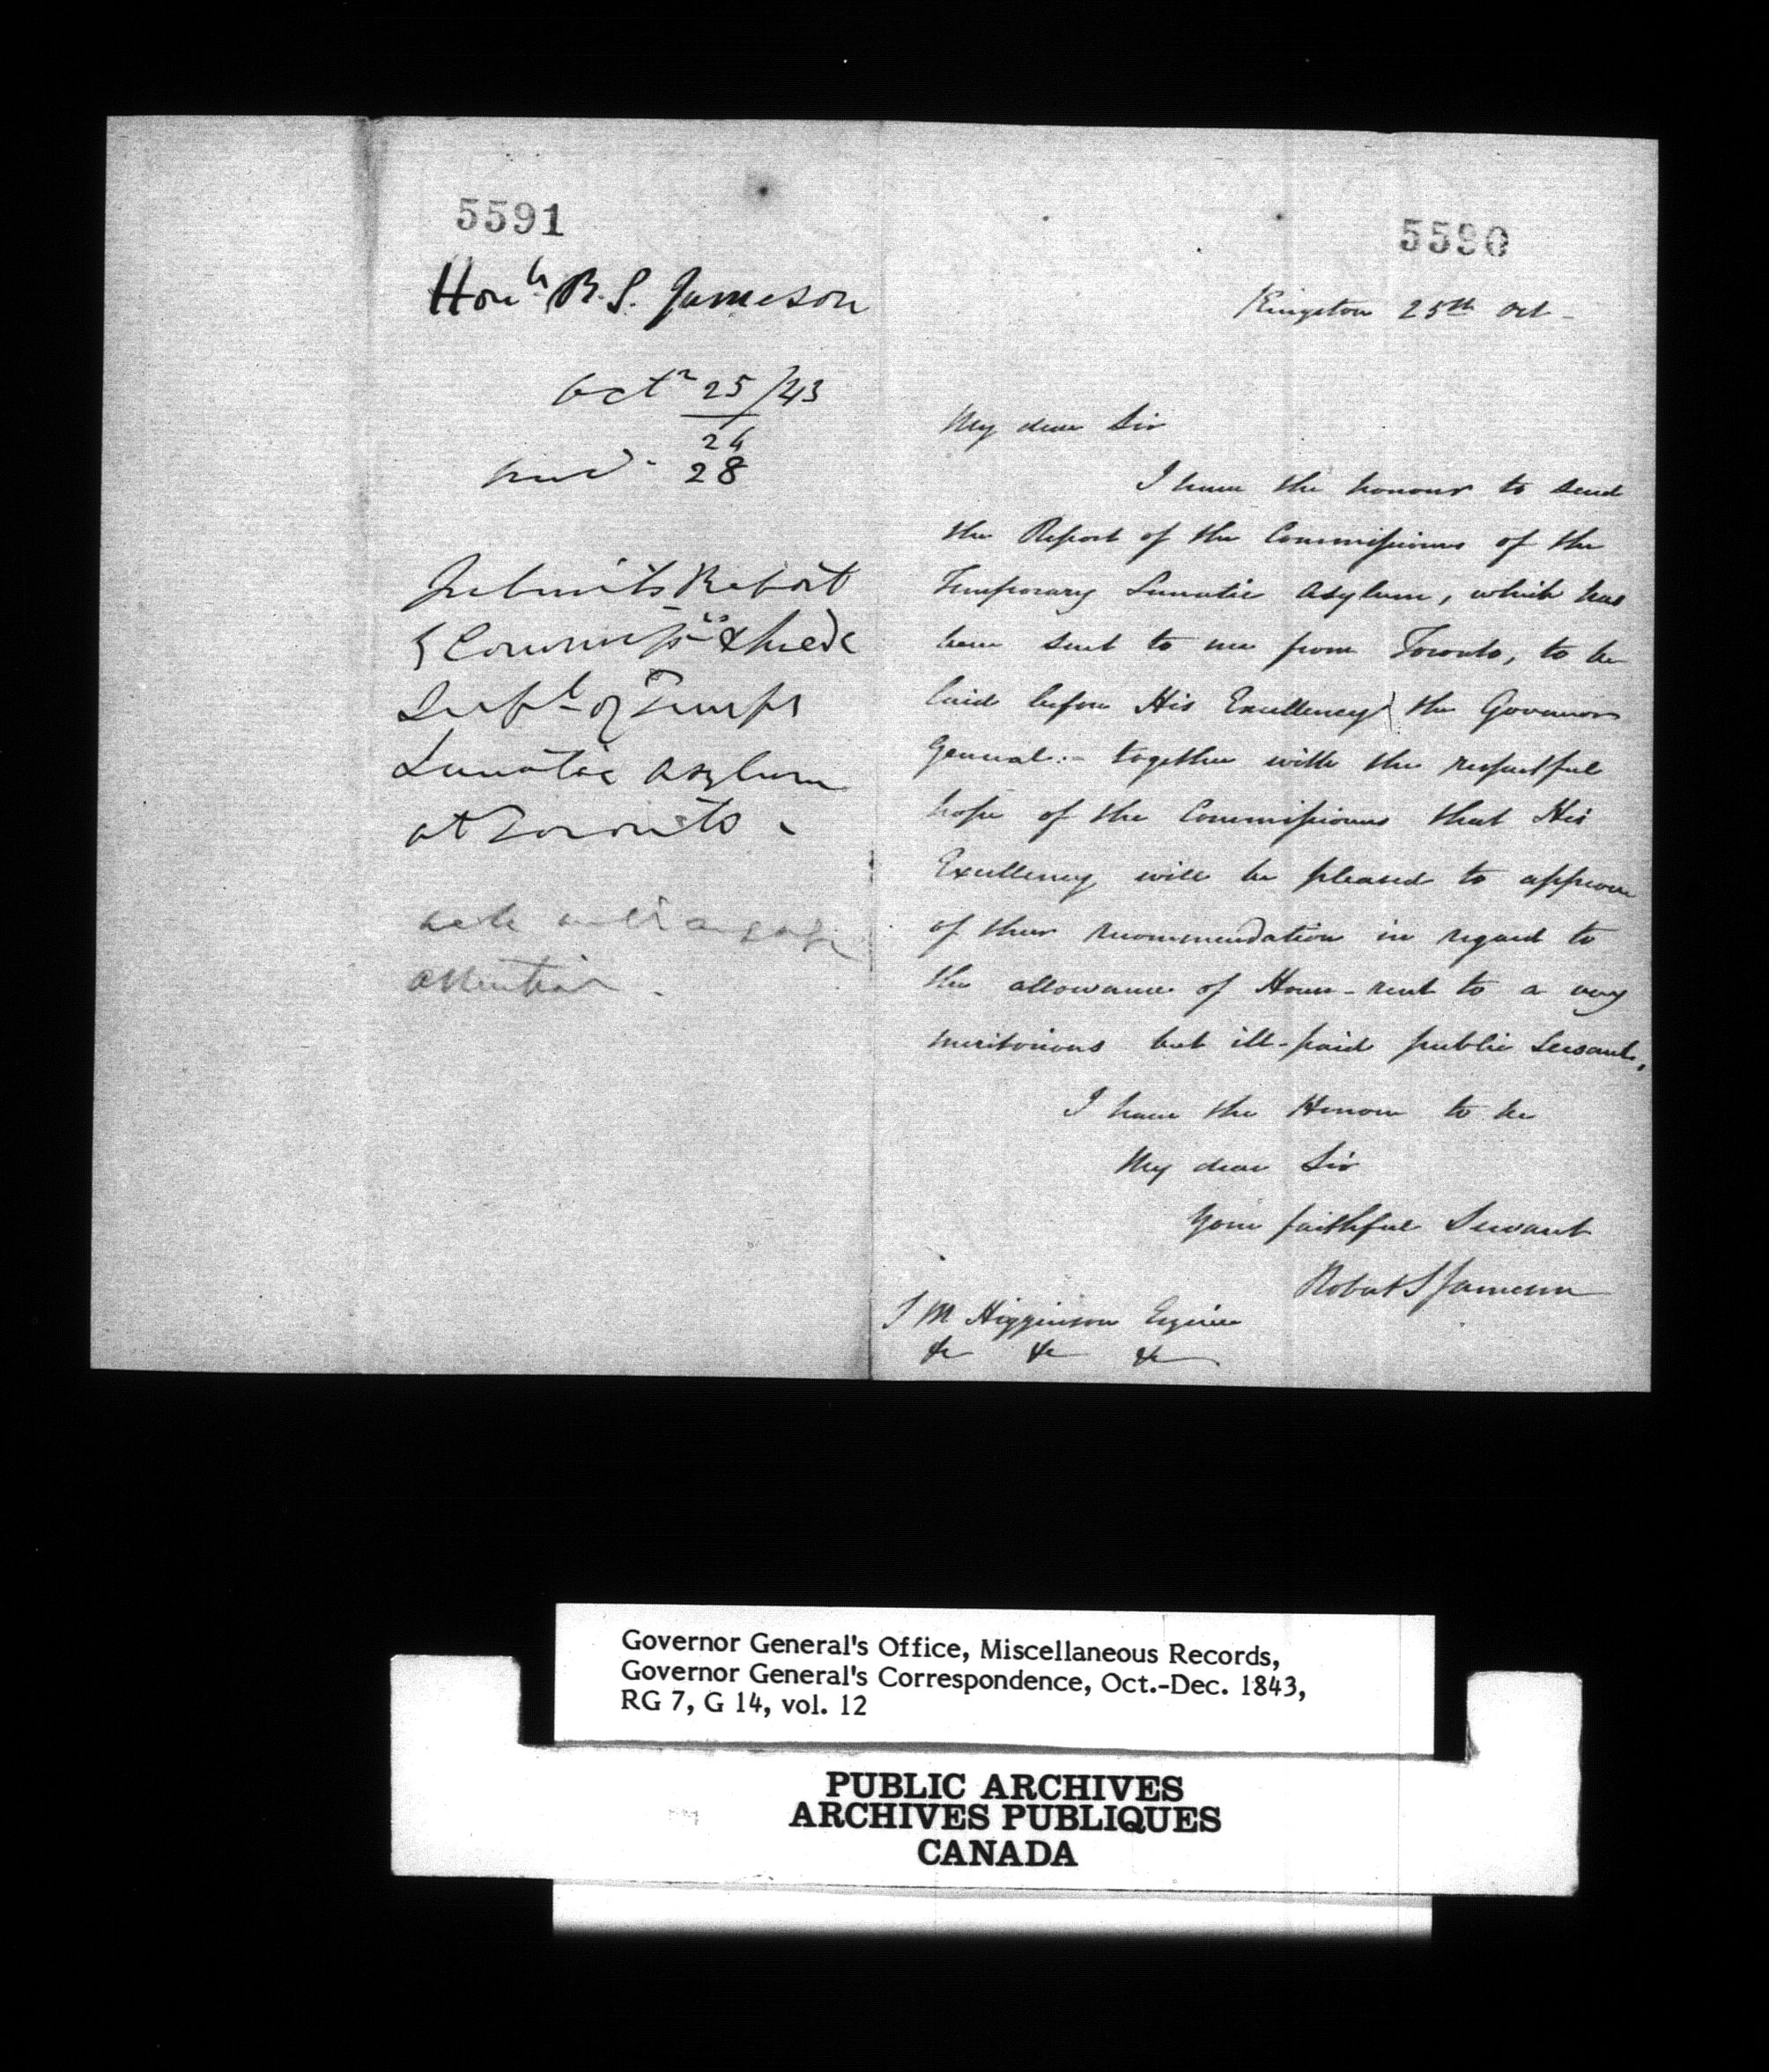 5591
Honble R. S. Jameson
Octr 25/43
26
28
Submits Report
of Commissrs & Medl
Supt of Tempy
Lunatic Asylum
at Toronto.
attention.
5590
Kingston 25th Oct
My dear Sir
I have the honour to send
the Report of the Commissioners of the
Temporary Lunatic Asylum, which has
been sent to me from Toronto, to be
laid before His Excellency the Governor
General:- together with the respectful
hope of the Commissioners that His
Excellency will be pleased to approve
of their recommendation in regard to
the allowance of House-rent to a very
meritorious but ill-paid public Servant.
I have the Honour to be
My dear Sir
Your faithful Servant
Robert S Jameson
J M Higginson Esquire
&c &c &c
Governor General's Office, Miscellaneous Records,
Governor General's Correspondence, Oct.-Dec. 1843,
RG 7, G 14, vol. 12
PUBLIC ARCHIVES
ARCHIVES PUBLIQUES
CANADA